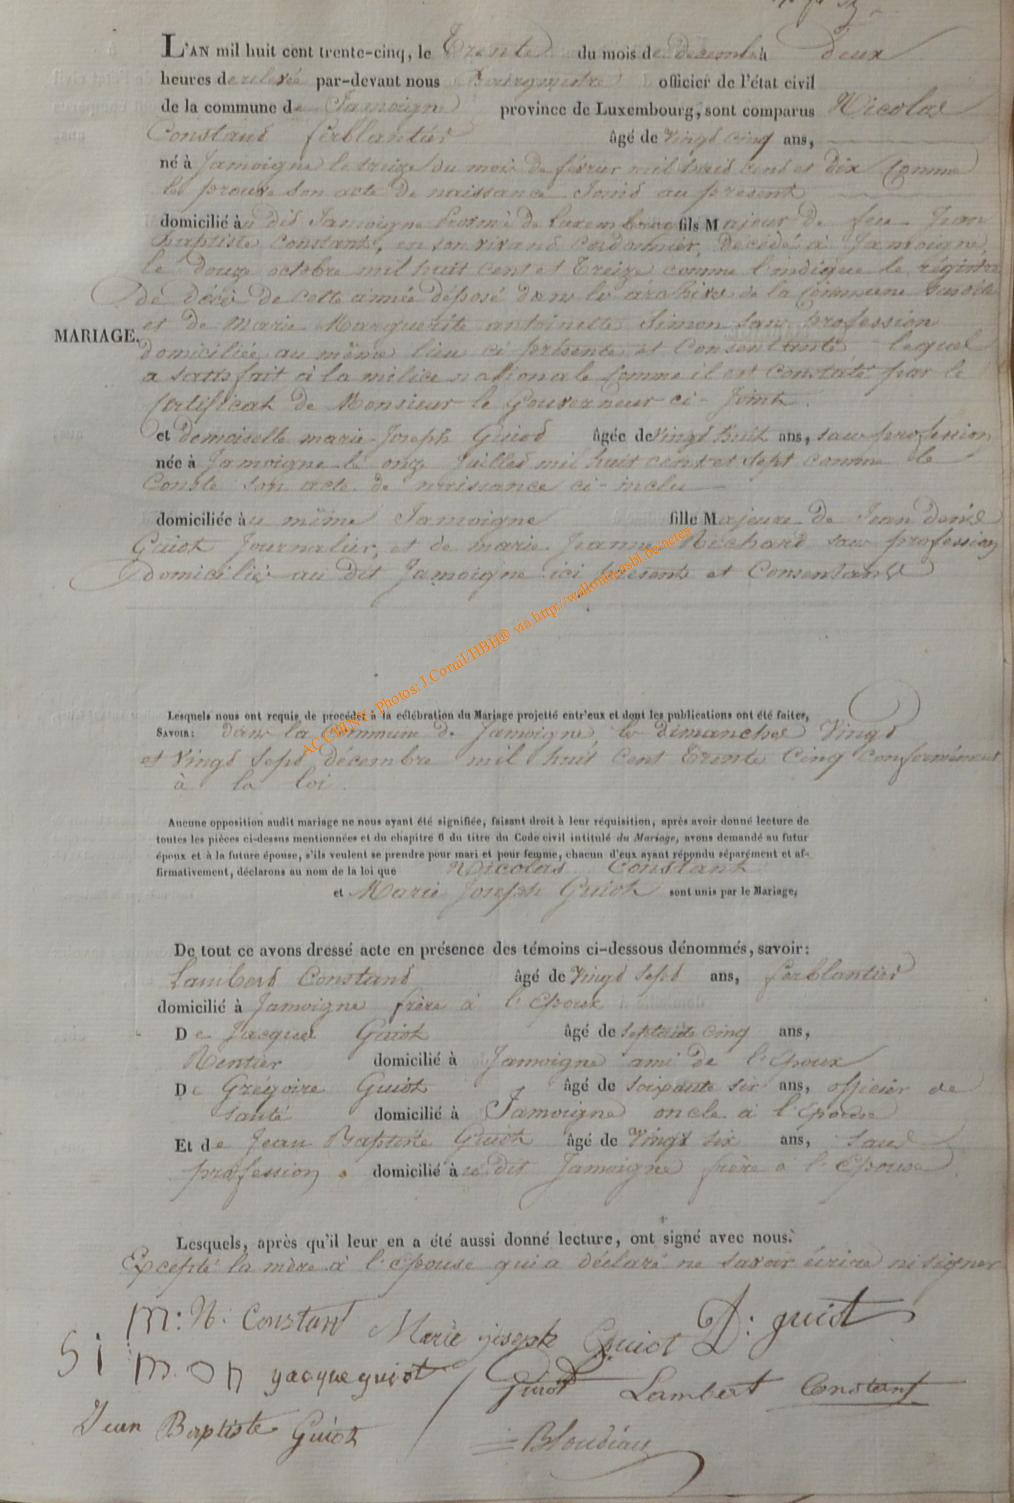 L'AN mil huit cent trente-cinq, le Trente du mois de décembre à deux
heures de relevée par-devant nous Bourgmestre officier de l'état civil
de la commune de Jamoigne province de Luxembourg, sont comparus Nicolas
Constant ferblantier âgé de vingt cinq ans,
né à Jamoigne le treize du mois de février mil huit cent et dix comme
le prouve son acte de naissance Joint au présent
domicilié au dit Jamoigne Province de Luxembourg fils Majeur de feu Jean
Baptiste Constant, en son vivant cordonnier, décédé à Jamoigne,
le douze octobre mil huit cent et Treize comme l'indique le régistre
de décès de cette année déposé dans les archives de la Commune susdite
et de Marie Marguerite antoinette Simon sans profession
MARIAGE.
domiciliée au même lieu ci présente et Consentante lequel
a satisfait à la milice nationale comme il est constaté par le
Certificat de Monsieur le Gouverneur ci-Joint.
et demoiselle marie-Joseph Guiot âgée de vingt huit ans, sans profession
née à Jamoigne le onze Juillet mil huit cent et sept comme le
Conste son acte de naissance ci-inclu
domiciliée au même Jamoigne fille Majeure de Jean denis
Guiot Journalier, et de marie Jeanne Richard sans profession
Domiciliés au dit Jamoigne ici présents et Consentants
ACCIENT - Photos: J.Cornil/HBH® via http://wallonica.asbl.de-actes
Lesquels nous ont requis de procéder à la célébration du Mariage projetté entr'eux et dont les publications ont été faites,
SAVOIR: dans la Commune de Jamoigne, les dimanches Vingt
et Vingt Sept décembre mil huit cent Trente Cinq conformément
à la loi.
Aucune opposition audit mariage ne nous ayant été signifiée, faisant droit à leur réquisition, après avoir donné lecture de
toutes les pièces ci-dessus mentionnées et du chapitre 6 du titre du Code civil intitulé du Mariage, avons demandé au futur
époux et à la future épouse, s'ils veulent se prendre pour mari et pour femme, chacun d'eux ayant répondu séparément et af-
firmativement, déclarons au nom de la loi que Nicolas Constant
et Marie Joseph Guiot sont unis par le Mariage,
De tout ce avons dressé acte en présence des témoins ci-dessous dénommés, savoir:
Lambert Constant âgé de vingt sept ans, ferblantier
domicilié à Jamoigne frère à l'Epoux
De Jacques Guiot âgé de septante cinq ans,
Rentier domicilié à Jamoigne ami de l'Epoux
De Grégoire Guiot âgé de soixante six ans, officier de
santé domicilié à Jamoigne oncle à l'épouse
Et de Jean Baptiste Guiot âgé de Vingt six ans, sans
profession domicilié à ce dit Jamoigne frère à l'Epouse
Lesquels, après qu'il leur en a été aussi donné lecture, ont signé avec nous.
Excepté la mère à l'Epouse qui a déclaré ne savoir écrire ni signer
M: N. Constant Marie joseph Guiot D: guiot
Simon jacque guiot Guiot Lambert Constant
Jean Baptiste Guiot